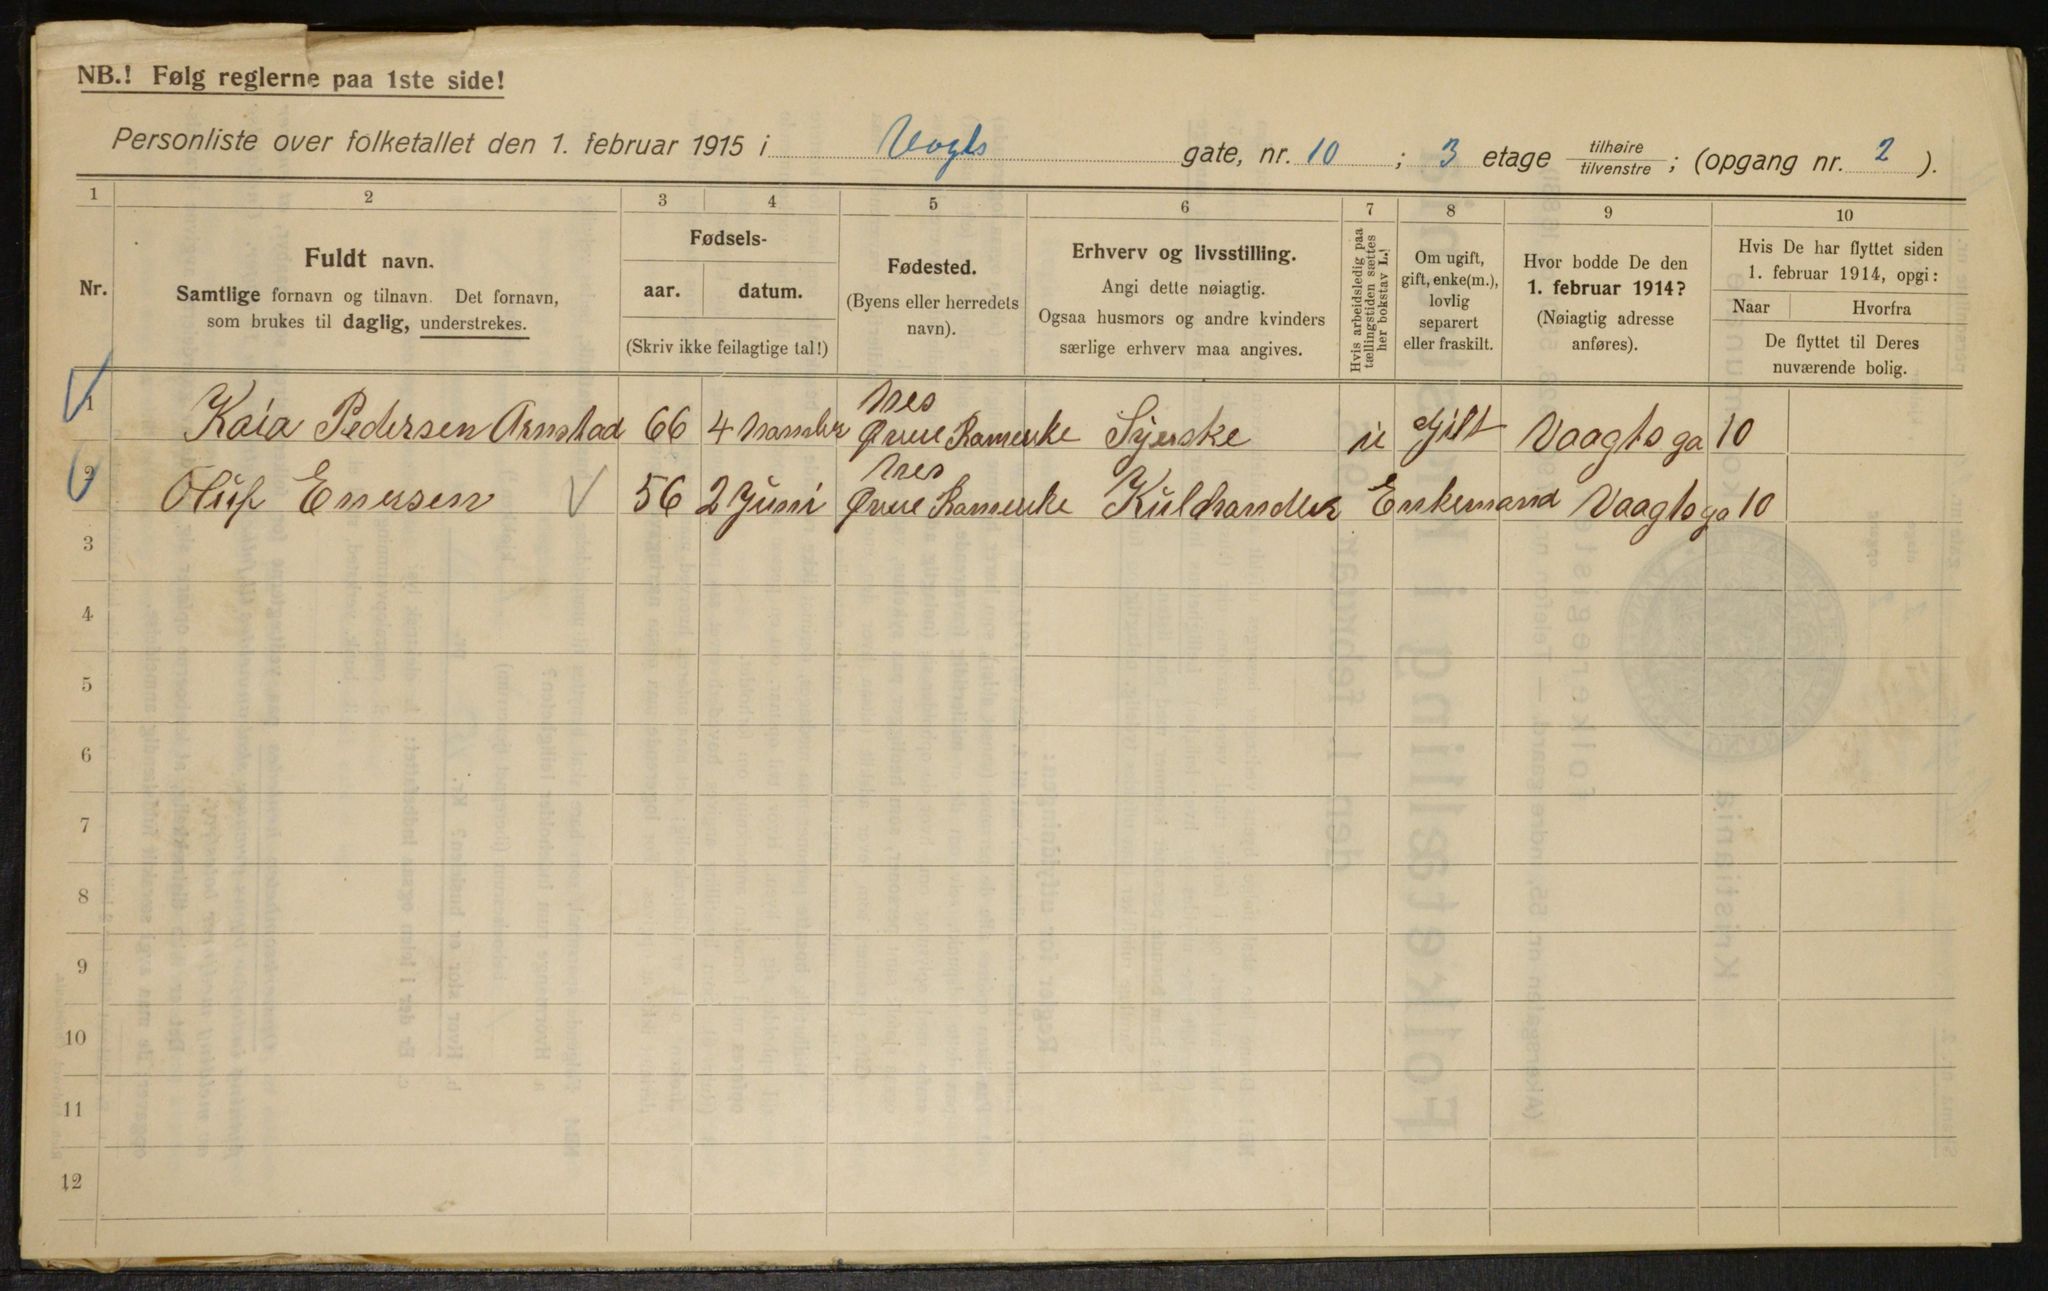 NB.! Følg reglerne paa 1ste side!
Personliste over folketallet den 1. februar 1915 i Vogts gate, nr. 10 ; 3 etage tilhøire tilvenstre ; (opgang nr. 2 ).
1 2 3 4 5 6 7 8 9 10
Nr.
Fuldt navn.
Samtlige fornavn og tilnavn. Det fornavn,
som brukes til daglig, understrekes.
Fødsels-
aar. datum.
(Skriv ikke feilagtige tal!)
Fødested.
(Byens eller herredets
navn).
Erhverv og livsstilling.
Angi dette nøiagtig.
Ogsaa husmors og andre kvinders
særlige erhverv maa angives.
Hvis arbeidsledig paa
tællingstiden sættes
her bokstav L.!
Om ugift,
gift, enke(m.),
lovlig
separert
eller fraskilt.
Hvor bodde De den
1. februar 1914?
(Nøiagtig adresse
anføres).
Hvis De har flyttet siden
1. februar 1914, opgi:
Naar Hvorfra
De flyttet til Deres
nuværende bolig.
1 Kaia Pedersen Arnstad 66 4 Øvre Syerske gift Vaagts ga 10
2 Oluf Enersen 56 2 Juni Øvre Kulhandler Enkemand Vaagts ga 10
3
4
5
6
7
8
9
10
11
12